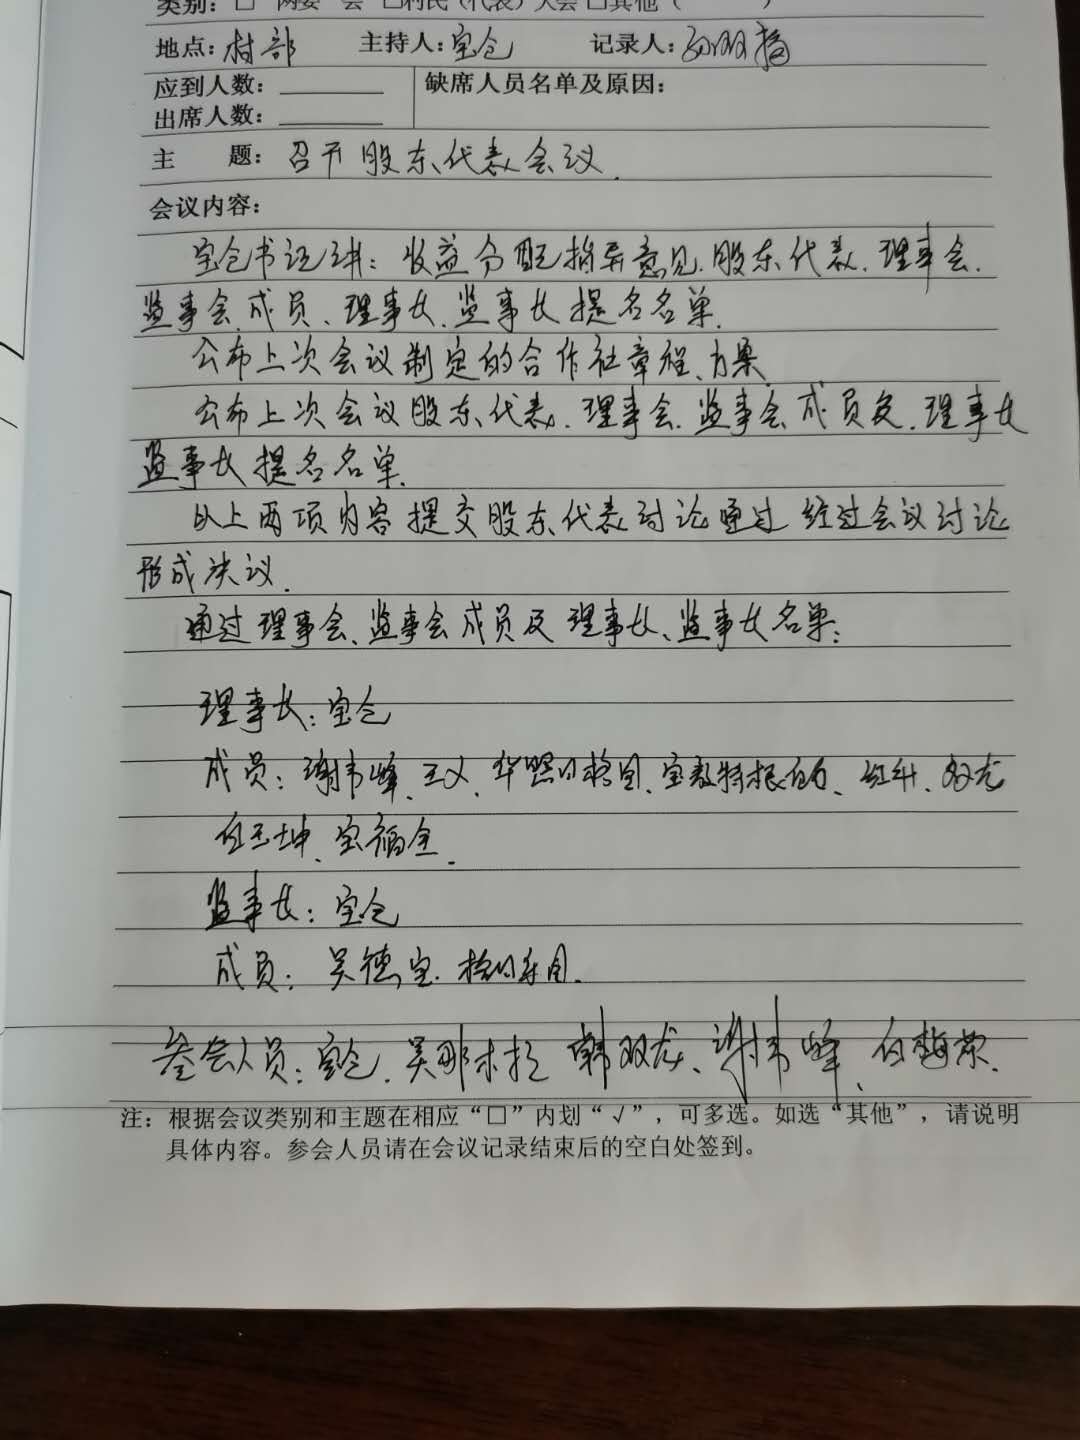 类别：□“两委”会 □村民（代表）大会 □其他（ ）
地点：村部 主持人：宝仓 记录人：
应到人数： 缺席人员名单及原因：
出席人数：
主 题：召开股东代表会议.
会议内容：
宝仓书记讲：收益分配指导意见.股东代表.理事会.
监事会成员、理事长.监事长提名名单.
公布上次会议制定的合作社章程、方案.
公布上次会议股东代表.理事会.监事会成员及.理事长
监事长提名名单.
以上两项内容提交股东代表讨论通过 经过会议讨论
形成决议.
通过理事会、监事会成员及理事长、监事长名单：
理事长：宝仓
成员：谢韦峰、王义、
白玉坤、宝福全.
监事长：宝仓
成员：吴德宝.
参会人员：宝仓.吴那木拉 韩双龙、谢韦峰、白梅荣.
注：根据会议类别和主题在相应“□”内划“√”，可多选。如选“其他”，请说明
具体内容。参会人员请在会议记录结束后的空白处签到。